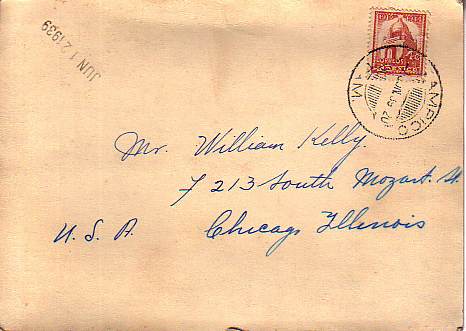 JUN 12 1939
1934
CORREOS
TAMPICO
TAM.
Mr. William Kelly.
7213 South Mozart. St
U.S.A. Chicago Illinois